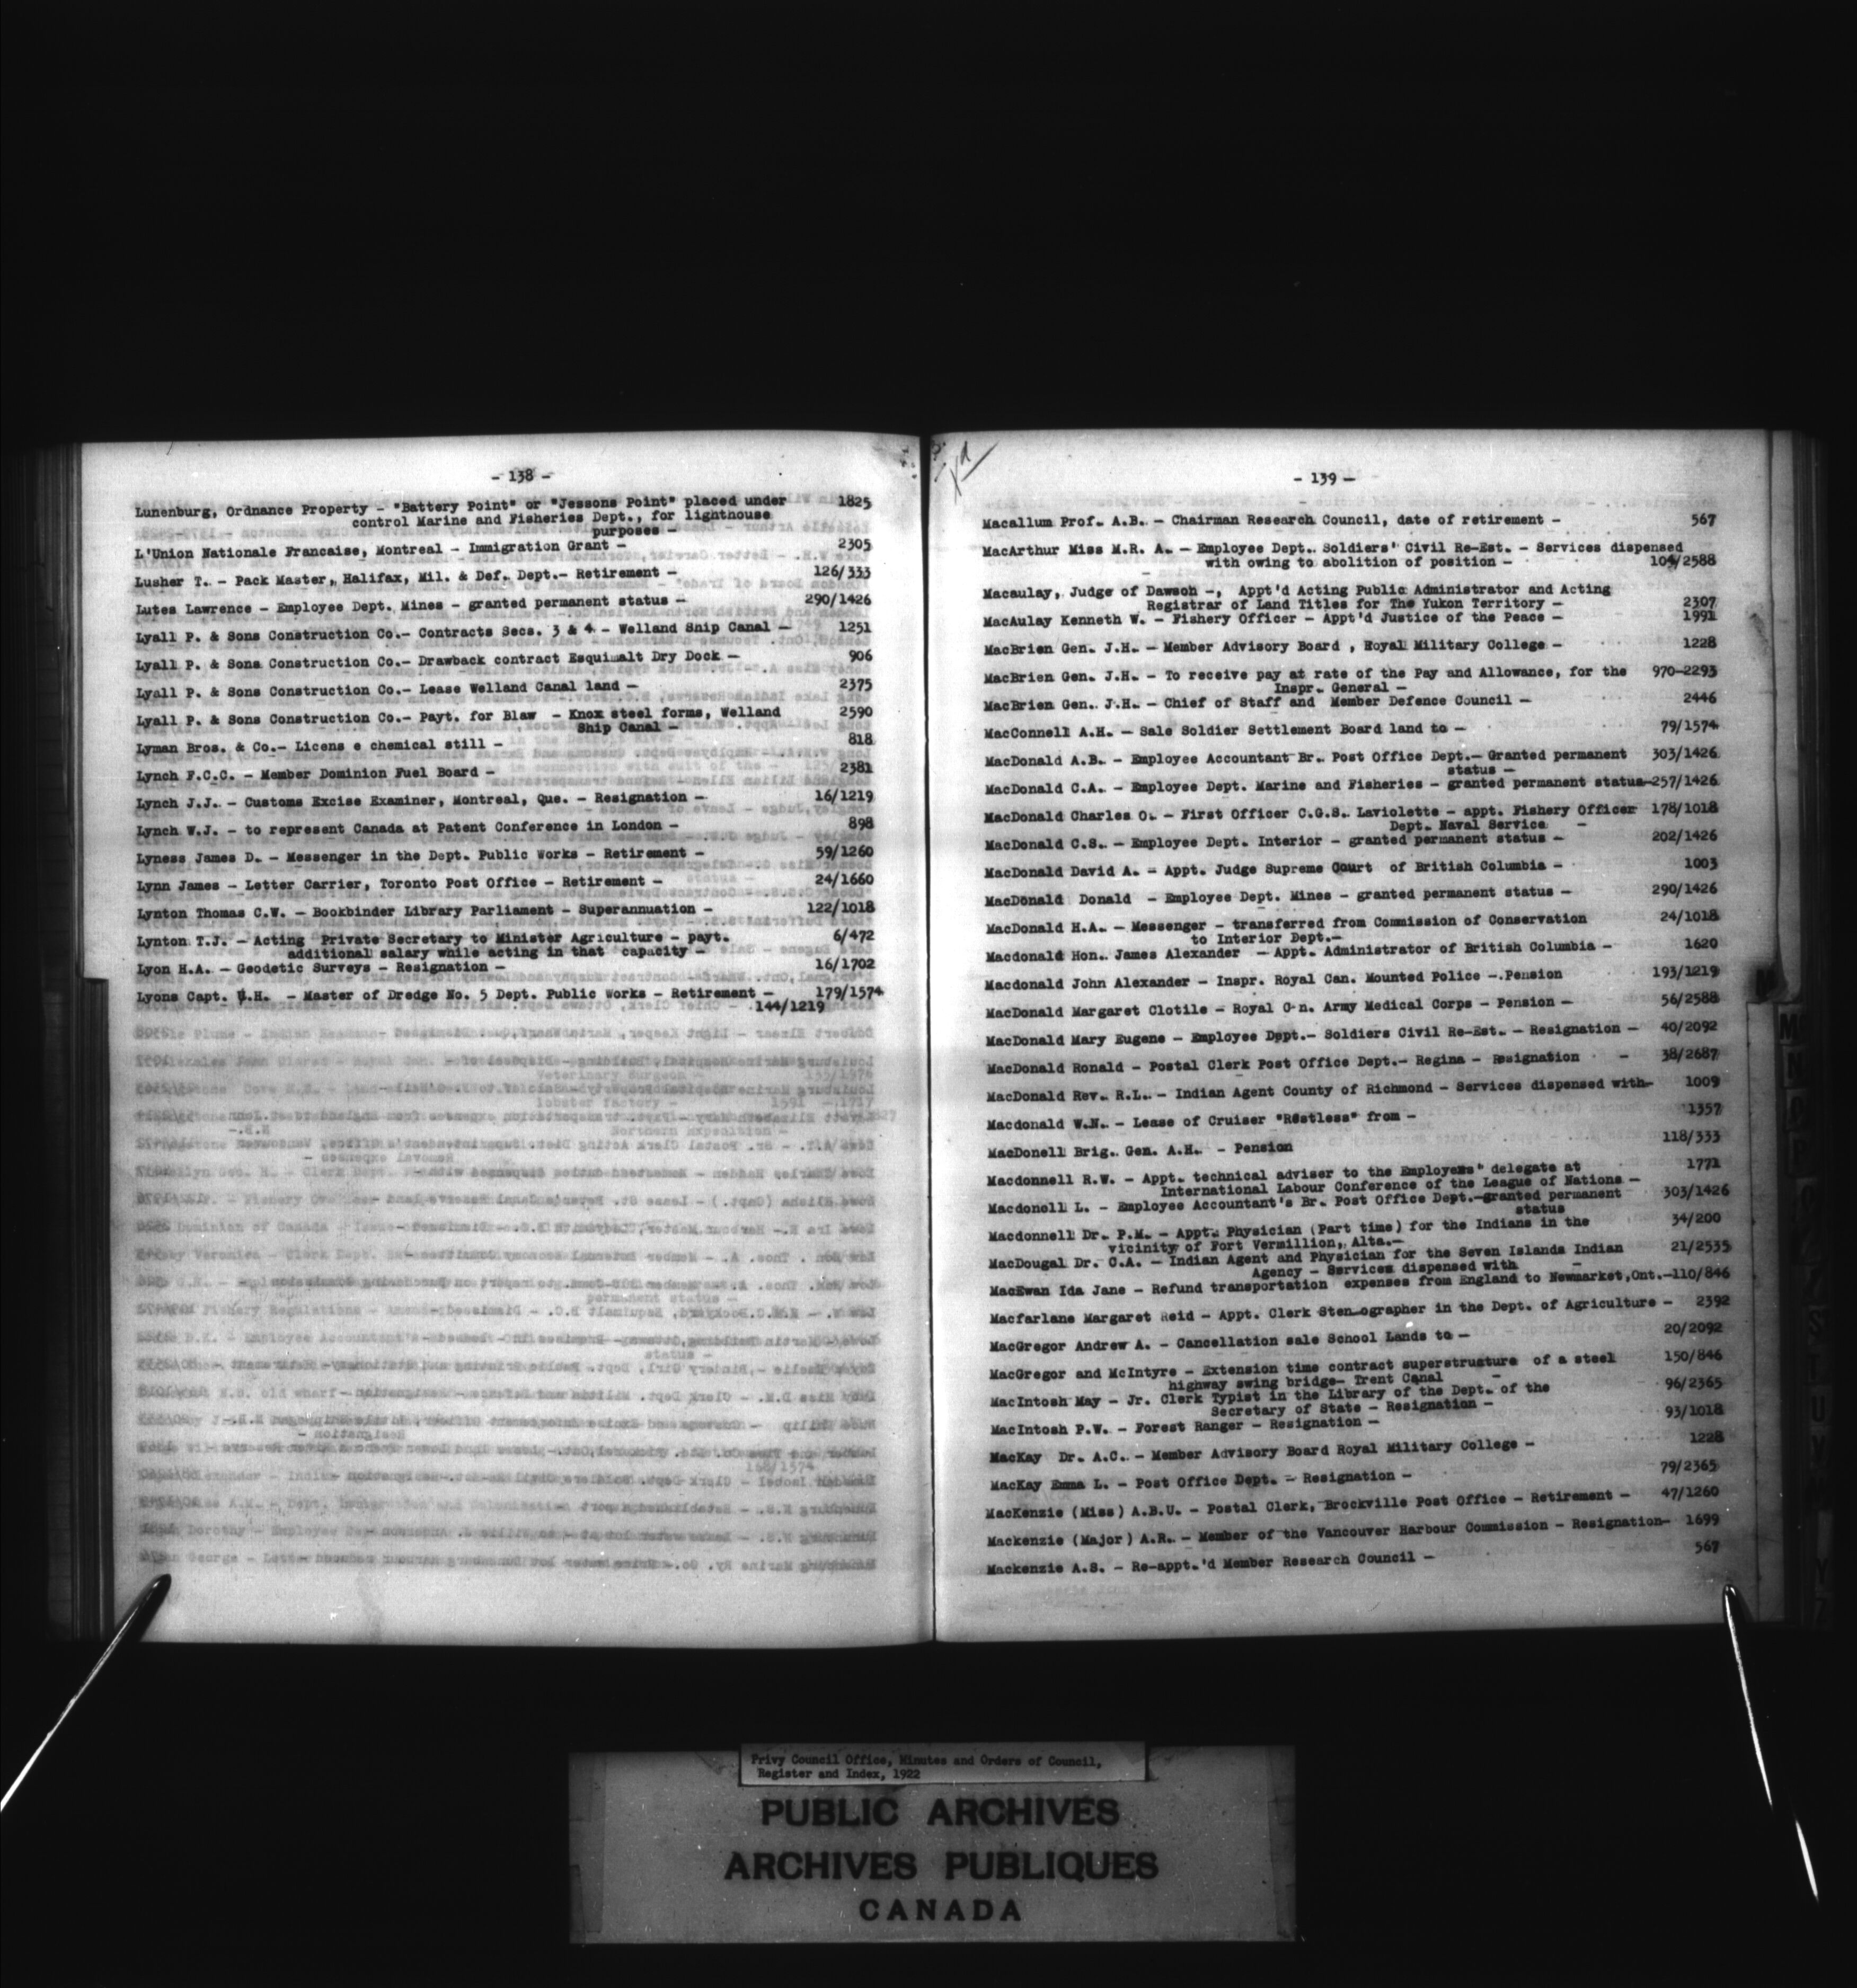 - 138 -
Lunenburg, Ordnance Property - "Battery Point" or "Jessons Point" placed under 1825
control Marine and Fisheries Dept., for lighthouse
purposes -
L'Union Nationale Francaise, Montreal - Immigration Grant - 2305
Lusher T. - Pack Master, Halifax, Mil. & Def. Dept.- Retirement - 126/333
Lutes Lawrence - Employee Dept. Mines - granted permanent status - 290/1426
Lyall P. & Sons Construction Co.- Contracts Secs. 3 & 4 - Welland Snip Canal - 1251
Lyall P. & Sons Construction Co.- Drawback contract Esquimalt Dry Dock - 906
Lyall P. & Sons Construction Co.- Lease Welland Canal land - 2375
Lyall P. & Sons Construction Co.- Payt. for Blaw - Knox steel forms, Welland 2590
Ship Canal -
Lyman Bros. & Co.- Licens e chemical still - 818
Lynch F.C.C. - Member Dominion Fuel Board - 2381
Lynch J.J. - Customs Excise Examiner, Montreal, Que. - Resignation - 16/1219
Lynch W.J. - to represent Canada at Patent Conference in London - 898
Lyness James D. - Messenger in the Dept. Public Works - Retirement - 59/1260
Lynn James - Letter Carrier, Toronto Post Office - Retirement - 24/1660
Lynton Thomas C.W. - Bookbinder Library Parliament - Superannuation - 122/1018
Lynton T.J. - Acting Private Secretary to Minister Agriculture - payt. 6/472
additional salary while acting in that capacity -
Lyon H.A. - Geodetic Surveys - Resignation - 16/1702
Lyons Capt. W.H. - Master of Dredge No. 5 Dept. Public Works - Retirement - 179/1574
144/1219
- 139 -
Macallum Prof. A.B. - Chairman Research Council, date of retirement - 567
MacArthur Miss M.R. A. - Employee Dept. Soldiers' Civil Re-Est. - Services dispensed
with owing to abolition of position - 104/2588
Macaulay, Judge of Dawson -, Appt'd Acting Public Administrator and Acting
Registrar of Land Titles for The Yukon Territory - 2307
MacAulay Kenneth W. - Fishery Officer - Appt'd Justice of the Peace - 1991
MacBrien Gen. J.H. - Member Advisory Board , Royal Military College - 1228
MacBrien Gen. J.H. - To receive pay at rate of the Pay and Allowance, for the 970-2293
Inspr. General -
MacBrien Gen. J.H. - Chief of Staff and Member Defence Council - 2446
MacConnell A.H. - Sale Soldier Settlement Board land to - 79/1574
MacDonald A.B. - Employee Accountant Br. Post Office Dept.- Granted permanent 303/1426
status -
MacDonald C.A. - Employee Dept. Marine and Fisheries - granted permanent status-257/1426
MacDonald Charles O. - First Officer C.G.S. Laviolette - appt. Fishery Officer 178/1018
Dept. Naval Service -
MacDonald C.S. - Employee Dept. Interior - granted permanent status - 202/1426
MacDonald David A. - Appt. Judge Supreme Court of British Columbia - 1003
MacDonald Donald - Employee Dept. Mines - granted permanent status - 290/1426
MacDonald H.A. - Messenger - transferred from Commission of Conservation 24/1018
to Interior Dept.-
Macdonald Hon. James Alexander - Appt. Administrator of British Columbia - 1620
Macdonald John Alexander - Inspr. Royal Can. Mounted Police - Pension 193/1219
MacDonald Margaret Clotile - Royal C n. Army Medical Corps - Pension - 56/2588
MacDonald Mary Eugene - Employee Dppt.- Soldiers Civil Re-Est. - Resignation - 40/2092
MacDonald Ronald - Postal Clerk Post Office Dept.- Regina - Resignation - 38/2687
MacDonald Rev. R.L. - Indian Agent County of Richmond - Services dispensed with- 1009
Macdonald W.N. - Lease of Cruiser "Restless" from - 1357
MacDonell Brig. Gen. A.H. - Pension 118/333
Macdonnell R.W. - Appt. technical adviser to the Employers' delegate at 1771
International Labour Conference of the League of Nations -
Macdonell L. - Employee Accountant's Br. Post Office Dept.-granted permanent 303/1426
status
Macdonnell Dr. P.M. - Appt. Physician (Part time) for the Indians in the 34/200
vicinity of Fort Vermillion, Alta.-
MacDougal Dr. C.A. - Indian Agent and Physician for the Seven Islands Indian 21/2535
Agency - Services dispensed with -
MacEwan Ida Jane - Refund transportation expenses from England to Newmarket,Ont.-110/846
Macfarlane Margaret Reid - Appt. Clerk Stenographer in the Dept. of Agriculture - 2392
MacGregor Andrew A. - Cancellation sale School Lands to - 20/2092
MacGregor and McIntyre - Extension time contract superstructure of a steel 150/846
highway swing bridge- Trent Canal -
MacIntosh May - Jr. Clerk Typist in the Library of the Dept. of the 96/2365
Secretary of State - Resignation -
MacIntosh P.W. - Forest Ranger - Resignation - 93/1018
MacKay Dr. A.C. - Member Advisory Board Royal Military College - 1228
MacKay Emma L. - Post Office Dept. - Resignation - 79/2365
MacKenzie (Miss) A.B.U. - Postal Clerk, Brockville Post Office - Retirement - 47/1260
Mackenzie (Major) A.R. - Member of the Vancouver Harbour Commission - Resignation- 1699
Mackenzie A.S. - Re-appt.'d Member Research Council - 567
Privy Council Office, Minutes and Orders of Council,
Register and Index, 1922
PUBLIC ARCHIVES
ARCHIVES PUBLIQUES
CANADA